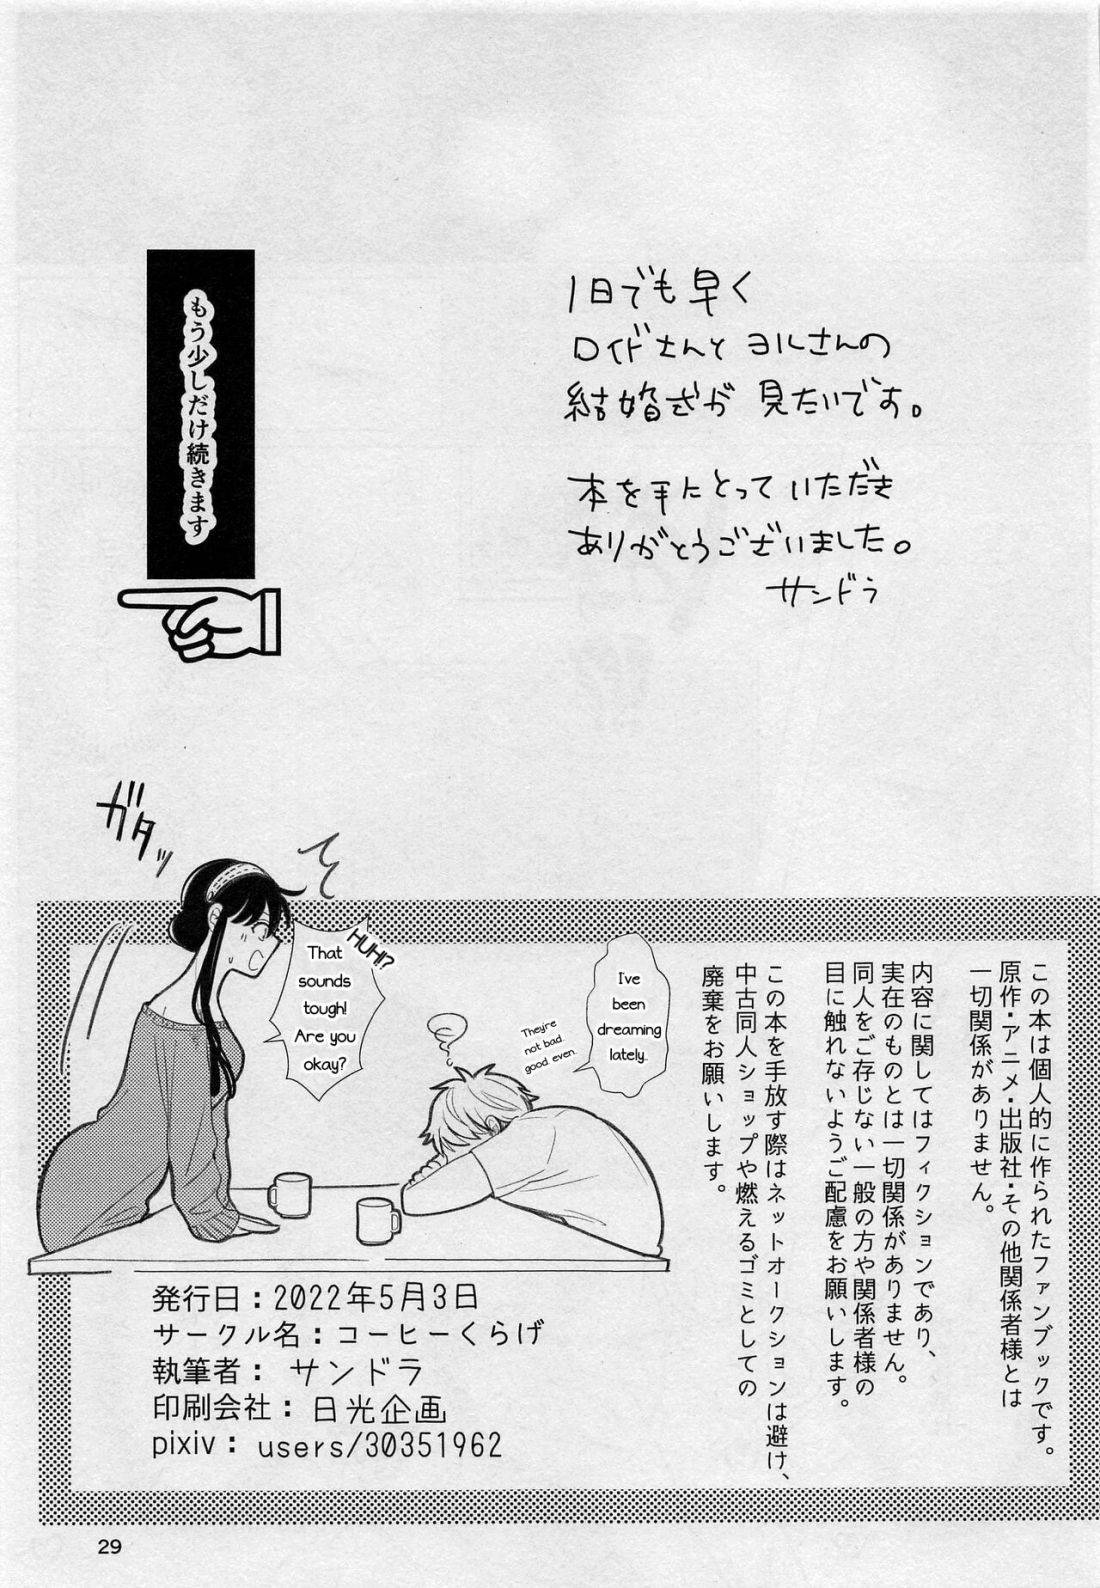 1日でも早く
ロイドさんと ヨルさんの
結婚式が 見たいです。
本を手にとっていただき
ありがとうございました。
サンドラ
もう少しだけ続きます
ガタッ
HUH!?
That
sounds
tough!
Are you
okay?
I've
been
dreaming
lately.
They're
not bad.
good even.
この本は個人的に作られたファンブックです。
原作・アニメ・出版社・その他関係者様とは
一切関係がありません。
内容に関してはフィクションであり、
実在のものとは一切関係がありません。
同人をご存じない一般の方や関係者様の
目に触れないようご配慮をお願いします。
この本を手放す際はネットオークションは避け、
中古同人ショップや燃えるゴミとしての
廃棄をお願いします。
発行日：2022年5月3日
サークル名：コーヒーくらげ
執筆者： サンドラ
印刷会社： 日光企画
pixiv： users/30351962
29